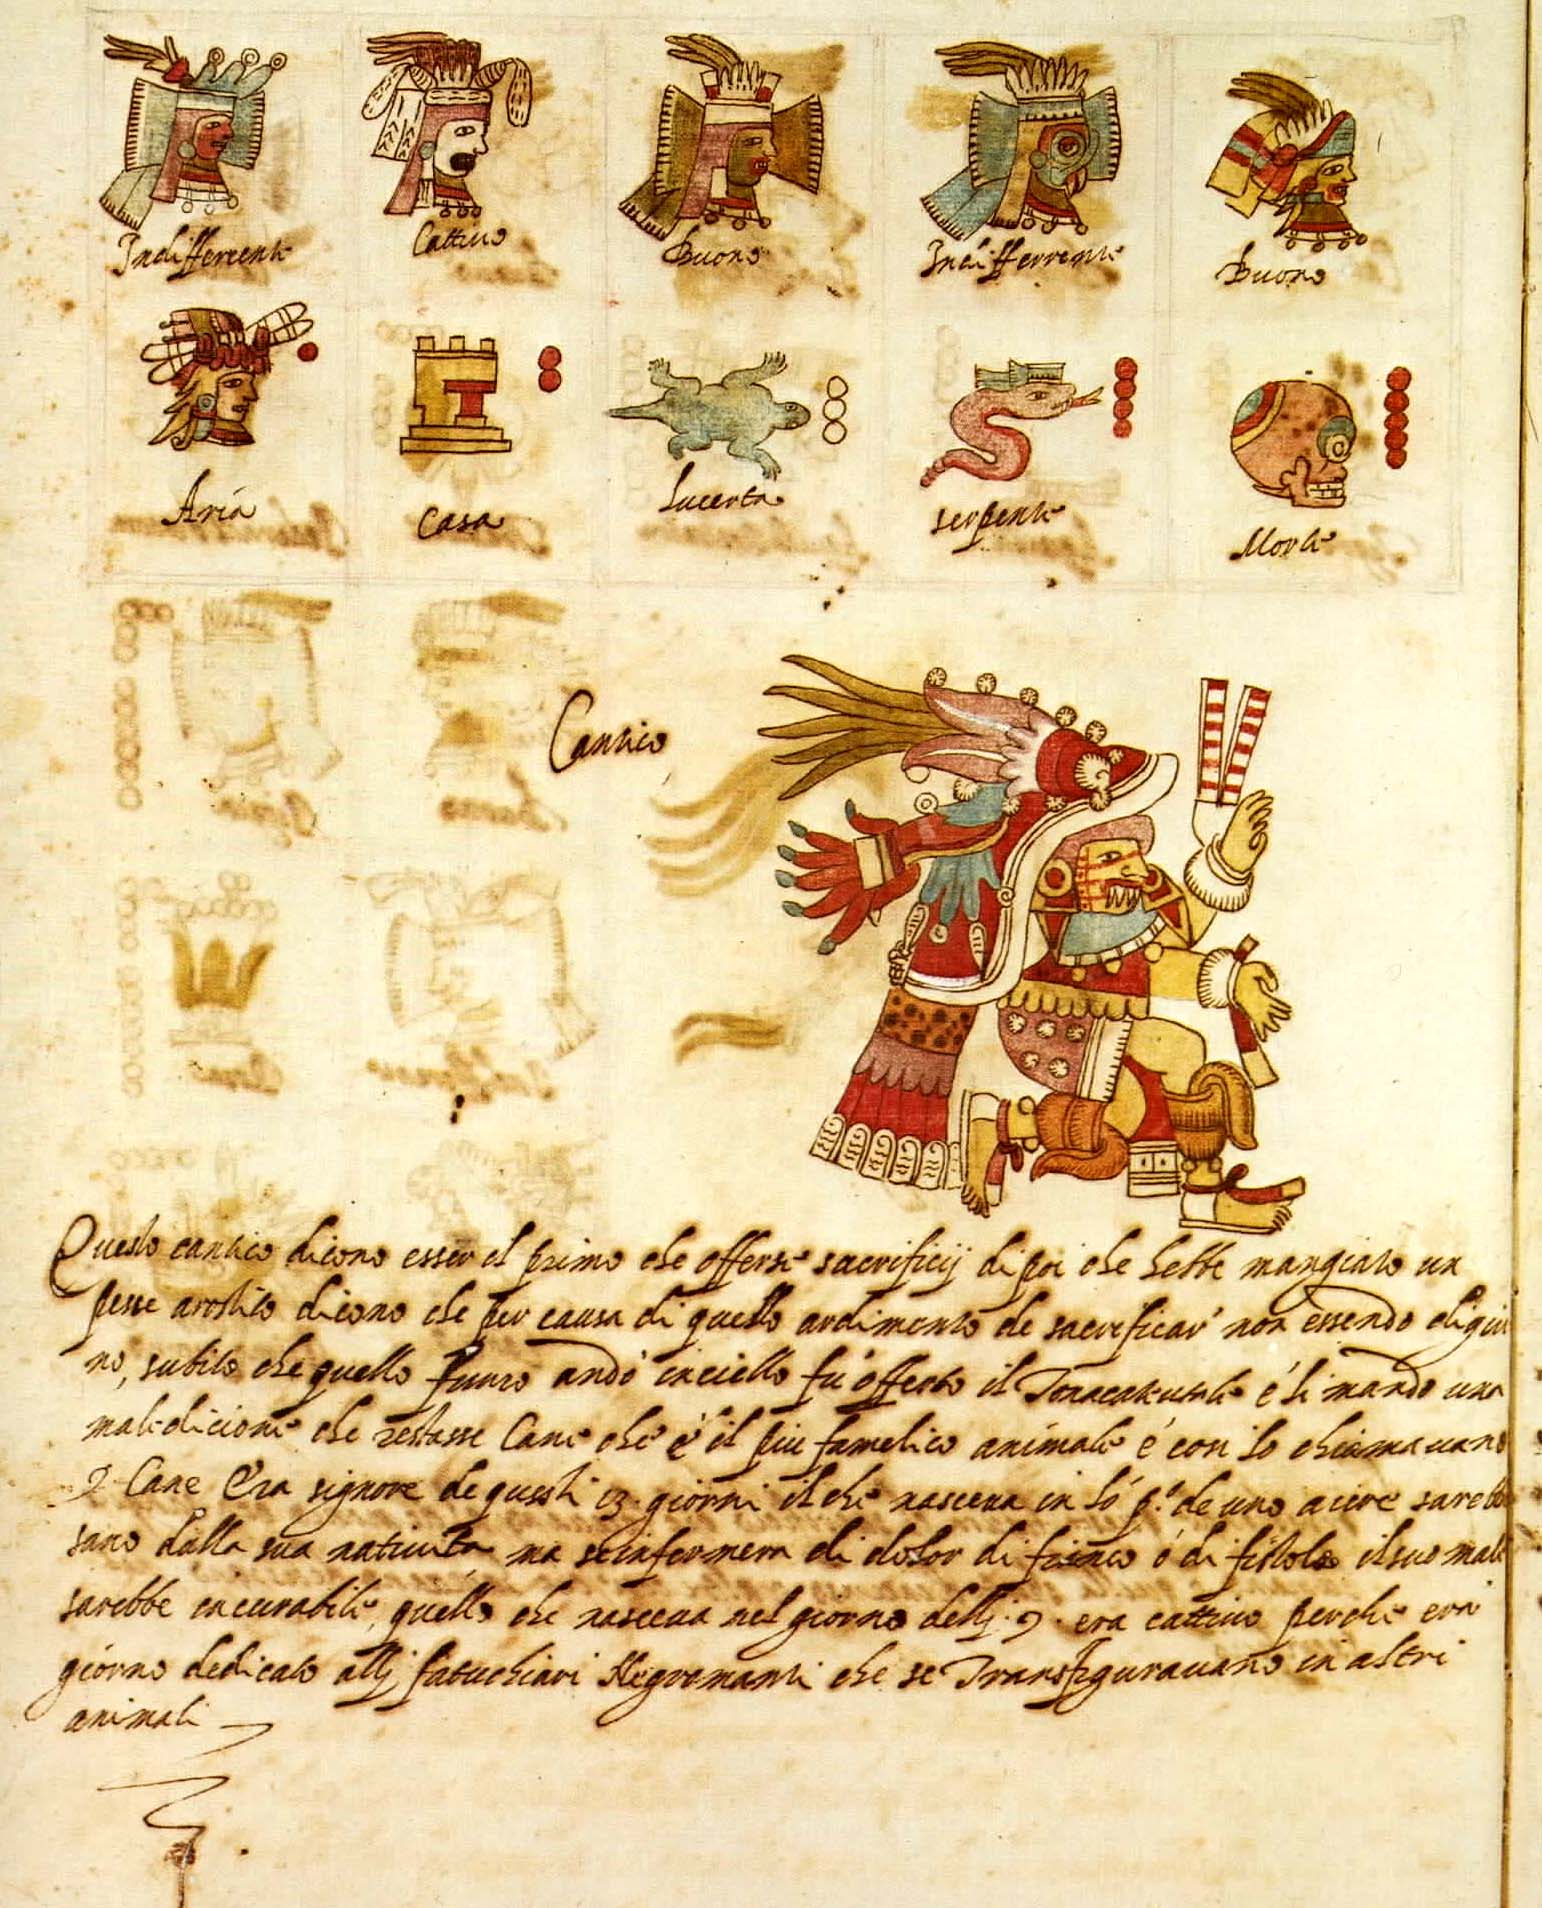 Indifferente
Cattiuo
Buono
Indifferente
Buono
Aria
Casa
Lucerta
serpente
Morte
Cantico
Questo cantico dicono esser il primo che offerse sacrificij di poi che hebbe mangiato un
pesse arostito dicono che per causa di questo ardimento de sacrificar' non essendo digiu
no, subito che quello fumo andò in ciello fu offeso il Tonacatecutle é li mando una
maledicione che restasse Cane che é il piu famelico animale é cosi lo chiamauano
9 Cane Era signore de questi 13 giorni il che nasceua in lo p.º de uno aiere sarebbe
sano dalla sua natiuita ma se infermera di dolor di fianco ó di fistola il suo male
sarebbe incurabile, quello che nasceua nel giorno delli .9. era cattiuo perche era
giorno dedicato alli fatuchiari Negromanti che se Transfigurauano in altri
animali